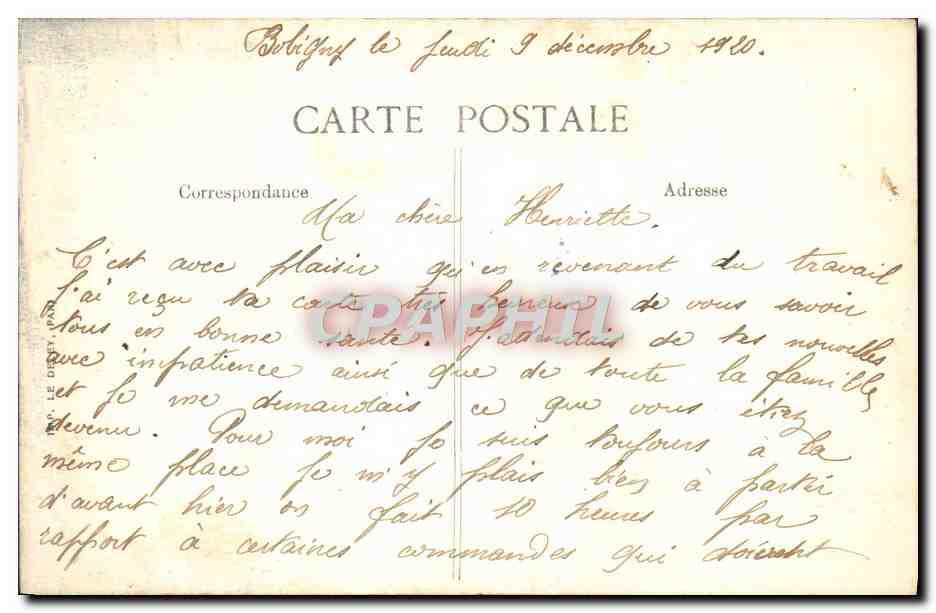 Bobigny le Jeudi 9 décembre 1920.
CARTE POSTALE
Correspondance
Adresse
Ma chère Henriette.
C'est avec plaisir qu'en revenant du travail
J'ai reçu ta carte très heureux de vous savoir
tous en bonne santé. J'attendais de tes nouvelles
avec impatience ainsi que de toute la famille
et Je me demandais ce que vous étiez
devenu. Pour moi Je suis toujours à la
même place Je m'y plais bien à partir
d'avant hier on fait 10 heures par
rapport à certaines commandes qui doivent
CPAPHIL
IMP. LE DELEY, PARIS